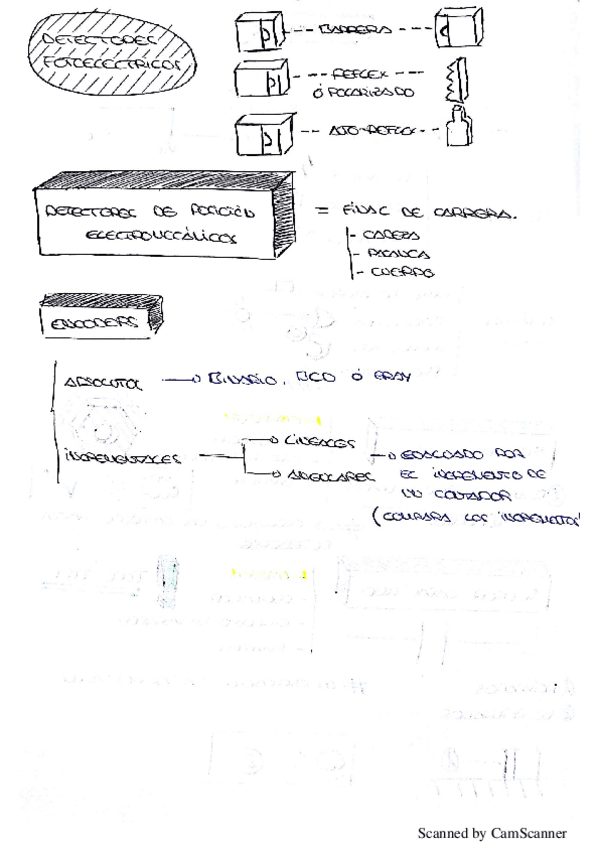 DETECTORES
FOTOELECTRICOS
BARRERA
REFLEX
Ó POLARIZADO
AUTO-REFLEX
DETECTORES DE POSICIÓN
ELECTROMECÁNICOS
= FINAL DE CARRERA.
- CABEZA
- PALANCA
- CUERPO
ENCODERS
ABSOLUTOS → BINARIO, BCD Ó GRAY
INCREMENTALES
LINEALES
ANGULARES
→ EVALUADO POR
EL INCREMENTO DE
UN CONTADOR
(COMPARA LOS INCREMENTOS
Scanned by CamScanner